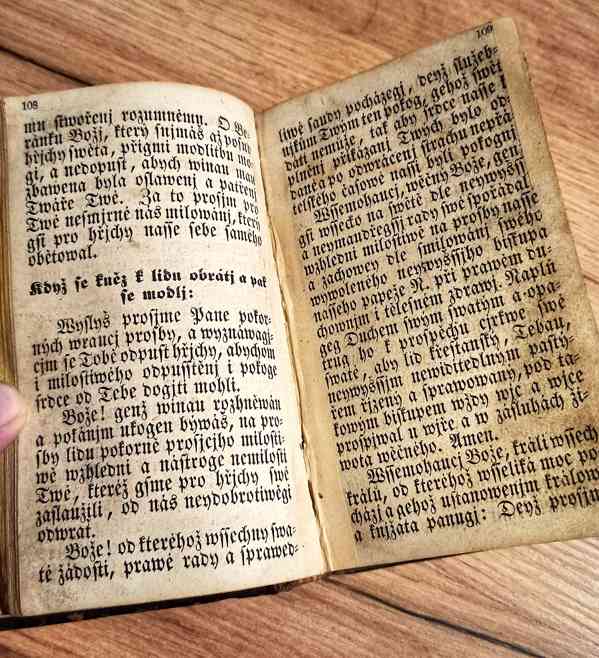 108
mu stwořenj rozumnému. O Be-
ránku Božj, který snjmáš
hřjchy swěta, přigmi modlitbu mo-
gi, a nedopusť, abych winau mau
zbawena byla oslawenj a patřenj
Twáře Twé. Za to prosjm pro
Twé nesmjrné nás milowánj, který
gsi pro hřjchy nasse sebe samého
obětowal.
Když se kněz k lidu obrátj a pak
se modlj:
Wyslyš prosjme Pane pokor-
ných wraucj prosby, a wyznáwagj-
cjm se Tobě odpusť hřjchy, abychom
i milostiwého odpusstěnj i pokoge
srdce od Tebe dogjti mohli.
Bože! genž winau rozhněwán
a pokánjm ukogen býwáš, na pro-
sby lidu pokorně prosjcjho milosti-
wě wzhledni a nástroge nemilosti
Twé, kteréž gsme pro hřjchy swé
zaslaužili, od nás neydobrotiwěgi
odwrať.
Bože! od kterěhož wssechny swa-
té žádosti, prawé rady a sprawed-
109
liwé saudy pocházegj, deyž služeb-
njkům Twým ten pokog, gehož swět
dáti nemůže, tak aby srdce nasse
plněnj přikázanj Twých bylo od-
dané a po odwrácenj strachu nepřá-
telského časowé nassi byli pokognj
Wssemohaucj, wěčný Bože, gen
gsi wssecko na swětě dle neywyšsj
a neymaudřegssj rady swé spořádal
wzhledni milostiwě na prosby nasse
a zachowey dle smilowánj swého
wywoleného neywyšsjho bistupa
nasseho papeže N. při prawém du-
chownjm i tělesném zdrawj. Naplň
geg Duchem swým swatým a opa-
trug ho k prospěchu cjrkwe swé
swaté, aby lid křestanský, Tebau,
neywyšsjm newiditedlným pastý-
řem řjzený a sprawowaný, pod ta-
kowým biskupem wždy wjc a wjce
prospjwal u wjře a w zásluhách ži-
wota wěčného. Amen.
Wssemohaucj Bože, králi wssech
králů, od kteréhož wsseliká moc po-
cházj a gehož ustanowenjm králowé
a knjžata panugj: Deyž prosjm